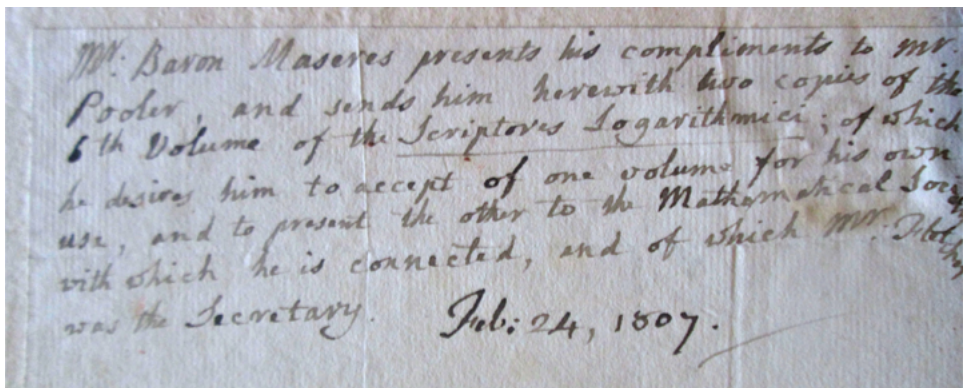 Mr. Baron Maseres presents his compliments to Mr.
Pooler, and sends him herewith two copies of the
6th Volume of the Scriptores Logarithmici; of which
he desires him to accept of one volume for his own
use, and to present the other to the Mathematical Society
with which he is connected, and of which Mr.
was the Secretary. Feb: 24, 1807.